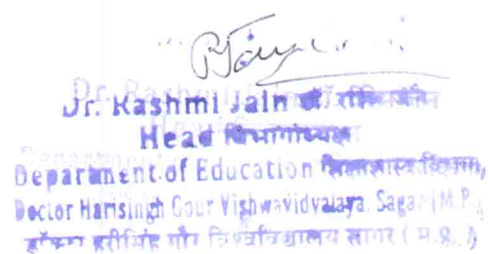 Dr. Rashmi Jain डॉ. रश्मि जैन
Head विभागाध्यक्ष
Department of Education शिक्षाशास्त्र विभाग,
Doctor Harisingh Gour Vishwavidyalaya, Sagar (M.P.)
डॉक्टर हरीसिंह गौर विश्वविद्यालय सागर ( म.प्र. )